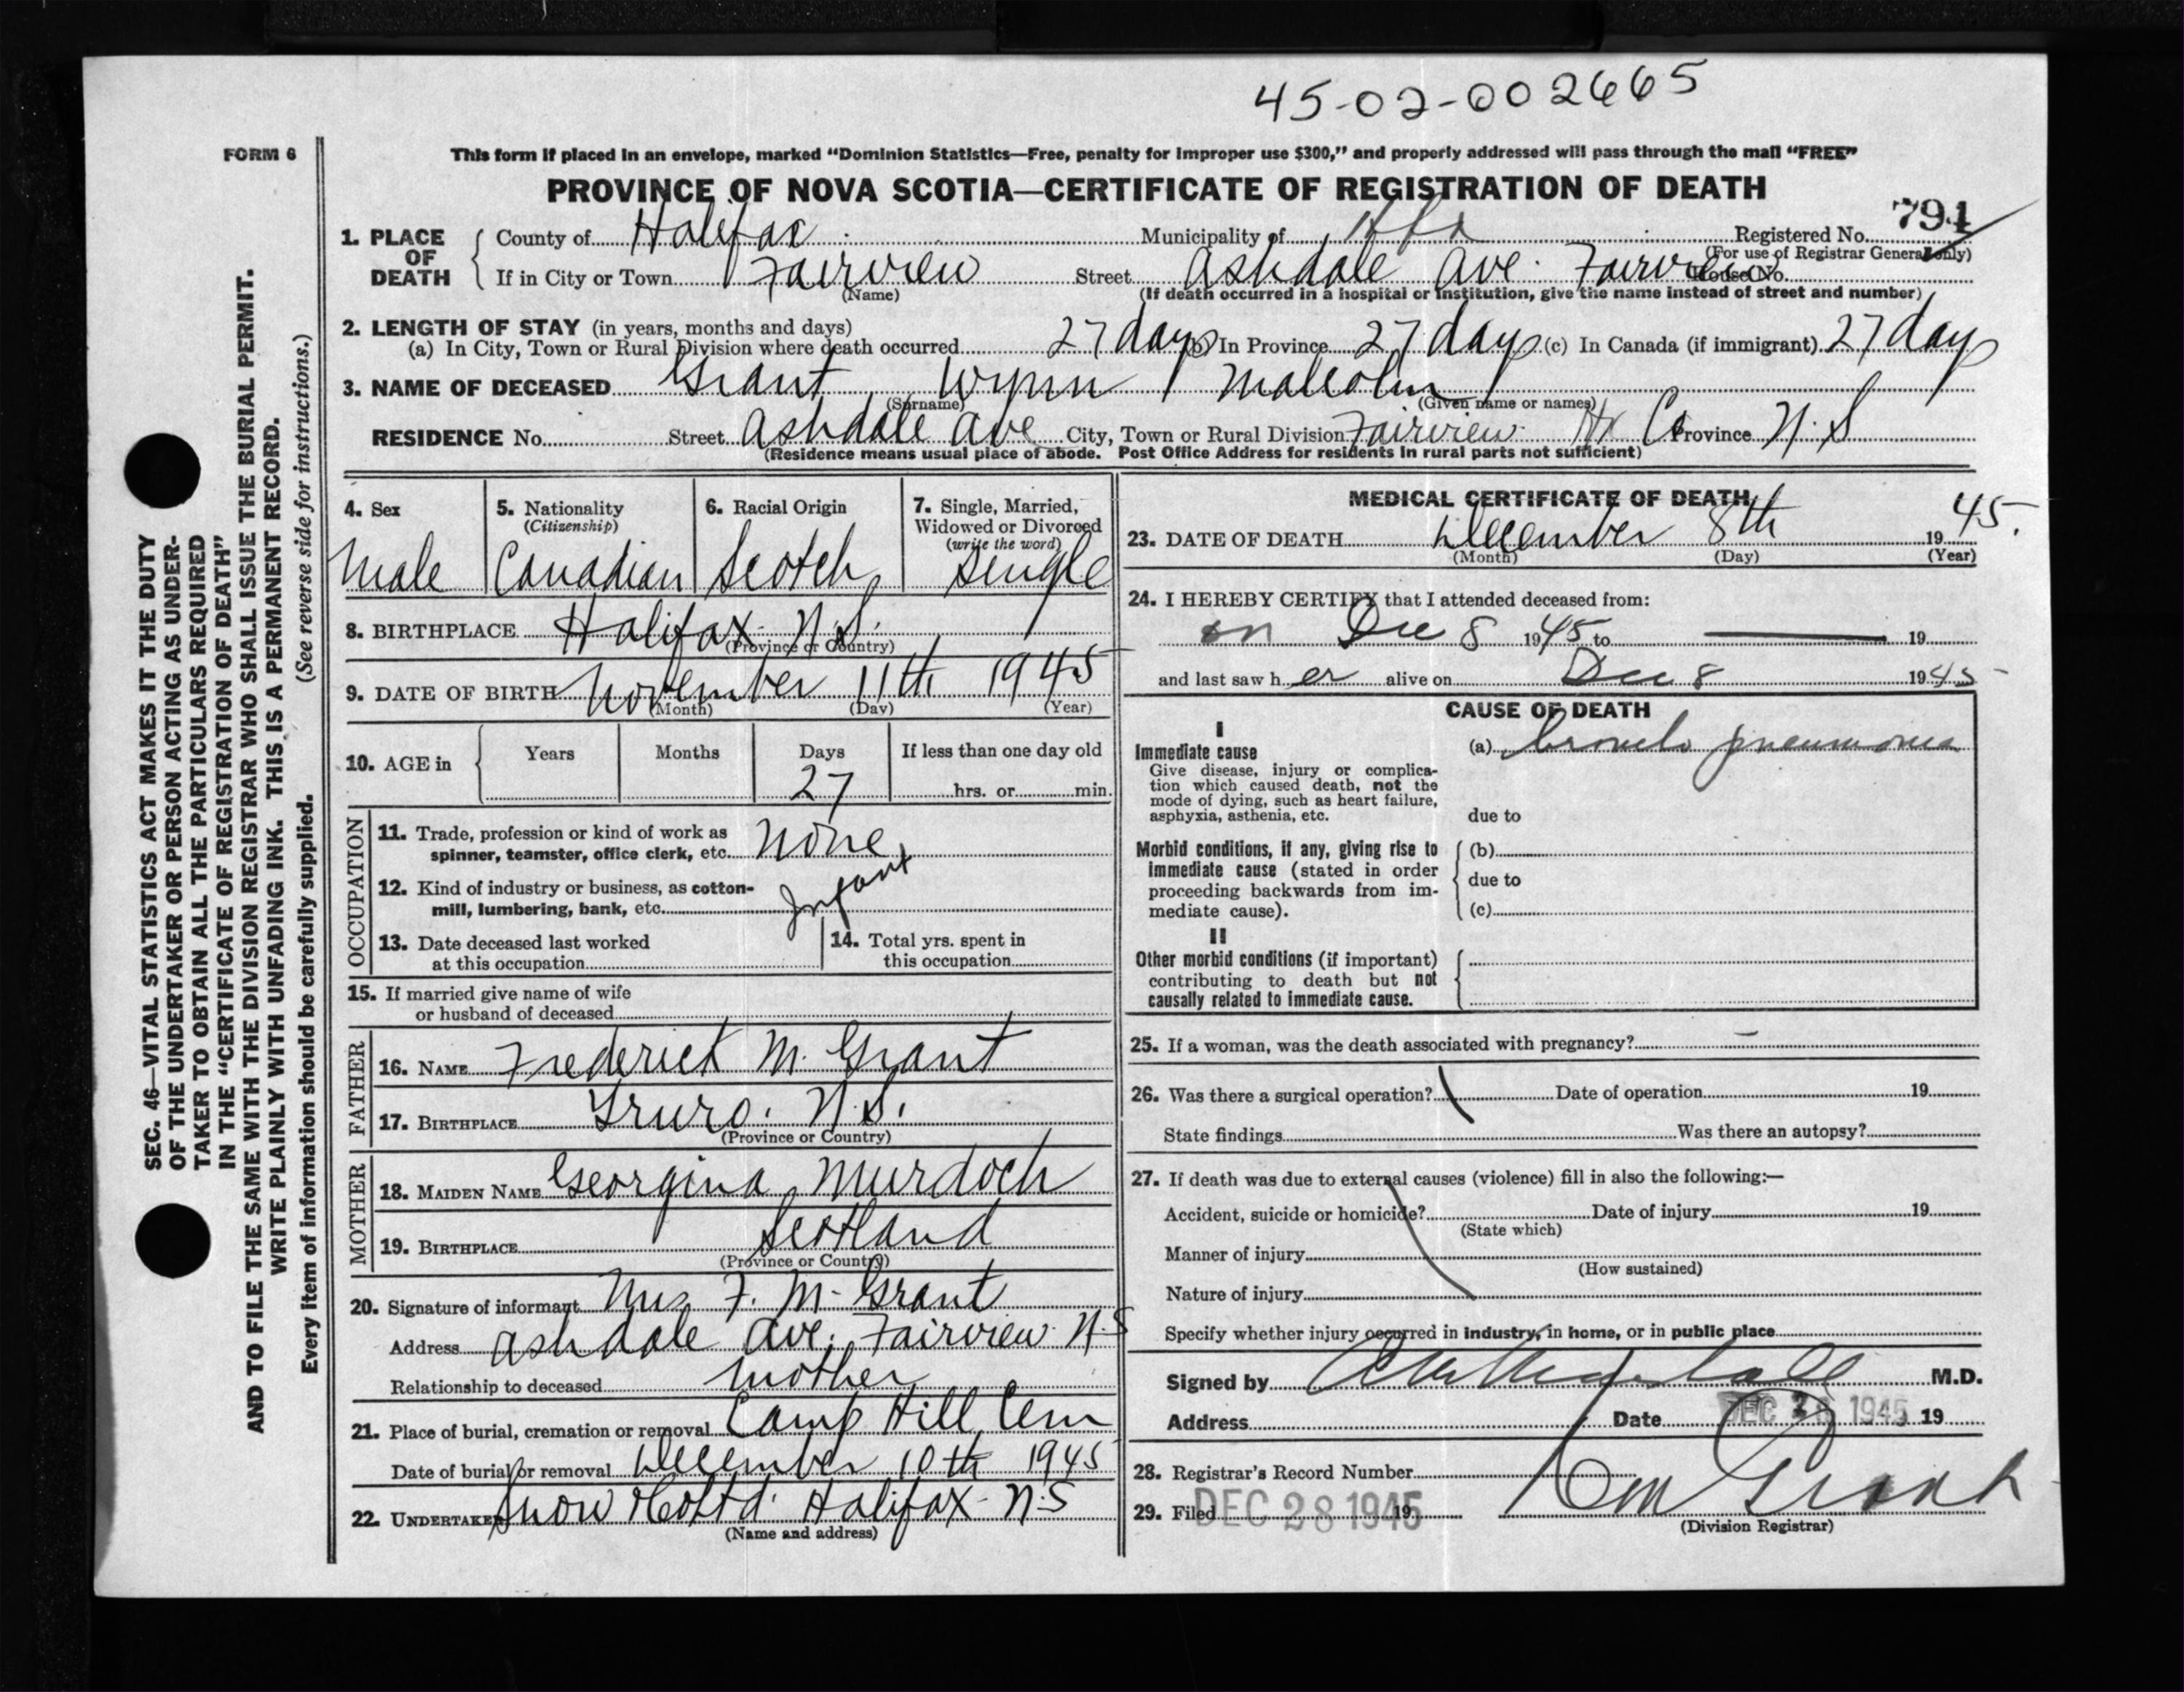 45-02-002665
FORM 6
This form if placed in an envelope, marked “Dominion Statistics—Free, penalty for improper use $300,” and properly addressed will pass through the mail “FREE”
PROVINCE OF NOVA SCOTIA—CERTIFICATE OF REGISTRATION OF DEATH
1. PLACE OF DEATH County of Halifax Municipality of Hfx Registered No. 794
(For use of Registrar General only)
If in City or Town Fairview Street Ashdale Ave. Fairview House No.
(Name) (If death occurred in a hospital or institution, give the name instead of street and number)
2. LENGTH OF STAY (in years, months and days)
(a) In City, Town or Rural Division where death occurred 27 days (b) In Province 27 days (c) In Canada (if immigrant) 27 days
3. NAME OF DECEASED Grant Wynn Malcolm
(Surname) (Given name or names)
RESIDENCE No. Street Ashdale Ave City, Town or Rural Division Fairview Hx Co Province N.S
(Residence means usual place of abode. Post Office Address for residents in rural parts not sufficient)
4. Sex
Male
5. Nationality
(Citizenship)
Canadian
6. Racial Origin
Scotch
7. Single, Married,
Widowed or Divorced
(write the word)
Single
8. BIRTHPLACE Halifax N.S.
(Province or Country)
9. DATE OF BIRTH November 11th 1945
(Month) (Day) (Year)
10. AGE in Years Months Days If less than one day old
27 hrs. or min.
OCCUPATION
11. Trade, profession or kind of work as
spinner, teamster, office clerk, etc. None
12. Kind of industry or business, as cotton-
mill, lumbering, bank, etc. Infant
13. Date deceased last worked
at this occupation
14. Total yrs. spent in
this occupation
15. If married give name of wife
or husband of deceased
FATHER
16. NAME Frederick M. Grant
17. BIRTHPLACE Truro. N.S.
(Province or Country)
MOTHER
18. MAIDEN NAME Georgina Murdoch
19. BIRTHPLACE Scotland
(Province or Country)
20. Signature of informant Mrs F. M. Grant
Address Ashdale Ave. Fairview N.S
Relationship to deceased Mother
21. Place of burial, cremation or removal Camp Hill Cem
Date of burial or removal December 10th 1945
22. UNDERTAKER Snow & Co Ltd. Halifax N.S
(Name and address)
MEDICAL CERTIFICATE OF DEATH
23. DATE OF DEATH December 8th 1945.
(Month) (Day) (Year)
24. I HEREBY CERTIFY that I attended deceased from:
on Dec 8 1945 to — 19
and last saw h er alive on Dec 8 1945
CAUSE OF DEATH
I
Immediate cause
Give disease, injury or complica-
tion which caused death, not the
mode of dying, such as heart failure,
asphyxia, asthenia, etc.
(a) broncho pneumonia
due to
Morbid conditions, if any, giving rise to
immediate cause (stated in order
proceeding backwards from im-
mediate cause).
(b)
due to
(c)
II
Other morbid conditions (if important)
contributing to death but not
causally related to immediate cause.
25. If a woman, was the death associated with pregnancy? —
26. Was there a surgical operation? Date of operation 19
State findings Was there an autopsy?
27. If death was due to external causes (violence) fill in also the following:—
Accident, suicide or homicide? Date of injury 19
(State which)
Manner of injury
(How sustained)
Nature of injury
Specify whether injury occurred in industry, in home, or in public place
Signed by M.D.
Address Date DEC 1945 19
28. Registrar's Record Number
29. Filed DEC 28 1945 19
Grant
(Division Registrar)
SEC. 46—VITAL STATISTICS ACT MAKES IT THE DUTY
OF THE UNDERTAKER OR PERSON ACTING AS UNDER-
TAKER TO OBTAIN ALL THE PARTICULARS REQUIRED
IN THE “CERTIFICATE OF REGISTRATION OF DEATH”
AND TO FILE THE SAME WITH THE DIVISION REGISTRAR WHO SHALL ISSUE THE BURIAL PERMIT.
WRITE PLAINLY WITH UNFADING INK. THIS IS A PERMANENT RECORD.
Every item of information should be carefully supplied. (See reverse side for instructions.)